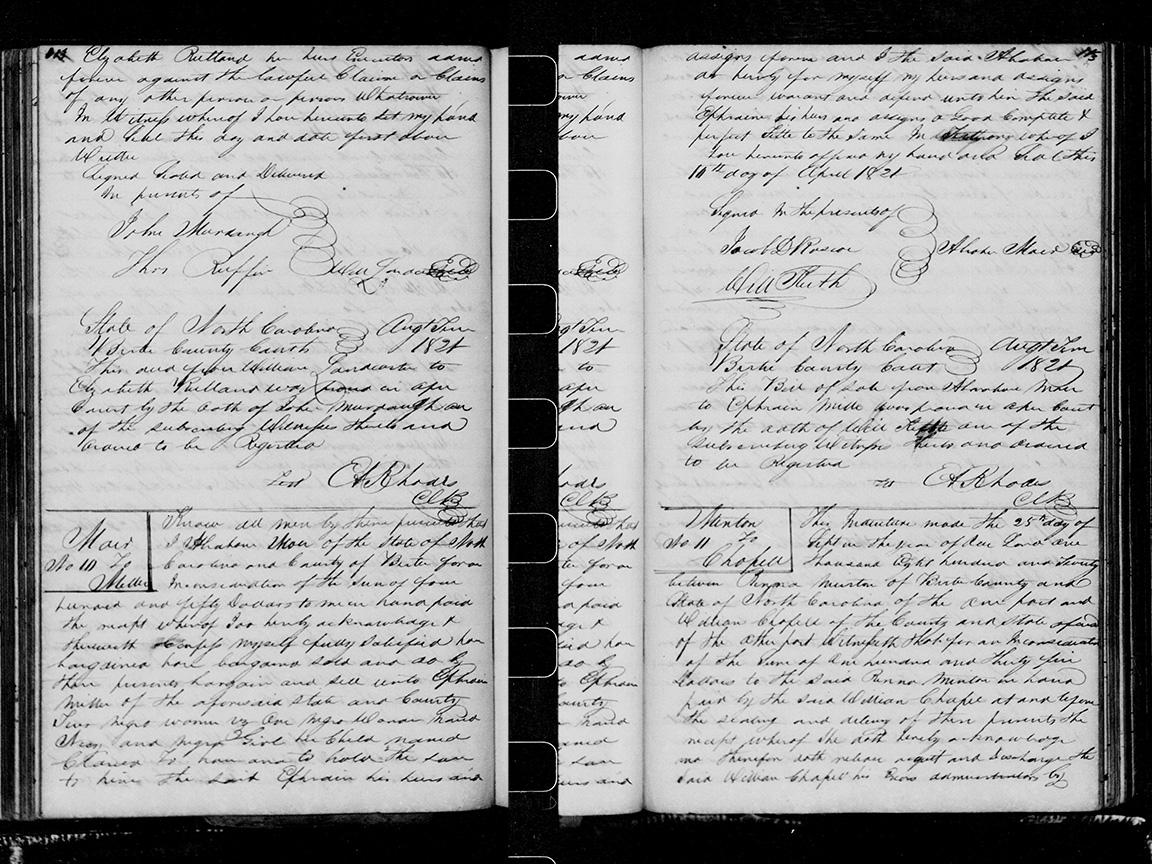 Elizabeth Rutland her heirs Executors admrs
forever against the lawful Claim or Claims
of any other person or persons Whatsoever
In Witness whereof I have hereunto Set my hand
and Seal this day and date first above
Written
Signed Sealed and Delivered
In presents of
John Murdaugh
Thos Ruffin Will
State of North Carolina Augt Term
Bertie County Court 1821
This deed from William to
Elizabeth Rutland was proved in open
Court by the oath of John Murdaugh one
of the subscribing Witnesses thereto and
ordered to be Registered
Test E A Rhodes
Clk
Mair
No 10 To
Miller
Know all men by these presents that
I Abraham Mair of the State of North
Carolina and County of Bertie for an
in consideration of the Sum of four
hundred and fifty Dollars to me in hand paid
the receipt whereof I do hereby acknowledge &
therewith Confess myself fully Satisfied have
bargained have bargand sold and do by
these presents bargain and sell unto Ephraim
Miller of the aforesaid state and County
Two negro women viz One negro Woman named
and negro Girl her Child named
to have and to hold the same
to him the said Ephraim his heirs and
115
assigns forever and I the Said Abraham
do hereby for myself my heirs and assigns
forever warant and defend unto him the Said
Ephraim his heirs and assigns a Good Complete &
perfect Title to the Same In whereof I
have hereunto affixed my hand and Seal this
10th day of April 1821
Signed In the presents of
Jacob D Roscoe Abraham Mair
Will
State of North Carolina Augt Term
Bertie County Court 1821
This Bill of Sale from Abraham Mair
to Ephraim Miller was proved in open Court
by the oath of Will one of the
Subscribing Witnesses thereto and ordered
to be Registered
E A Rhodes
Clk
Minton
No 11 To
Chapel
This Indenture made The 25th day of
Sept in the year of Our Lord One
Thousand Eight hundred and Twenty
between Penna Minton of Bertie County and
State of North Carolina of the One part and
William Chapel of the County and State aforesaid
of the other part Witnesseth that for an In consideration
of the Sum of One hundred and thirty five
Dollars to the said Penna Minton in hand
paid by the Said William Chapel at and before
the sealing and delivery of these presents the
receipt whereof She doth hereby acknowledge
and therefore doth release acquitt and discharge the
Said William Chapel his Exors administrators by